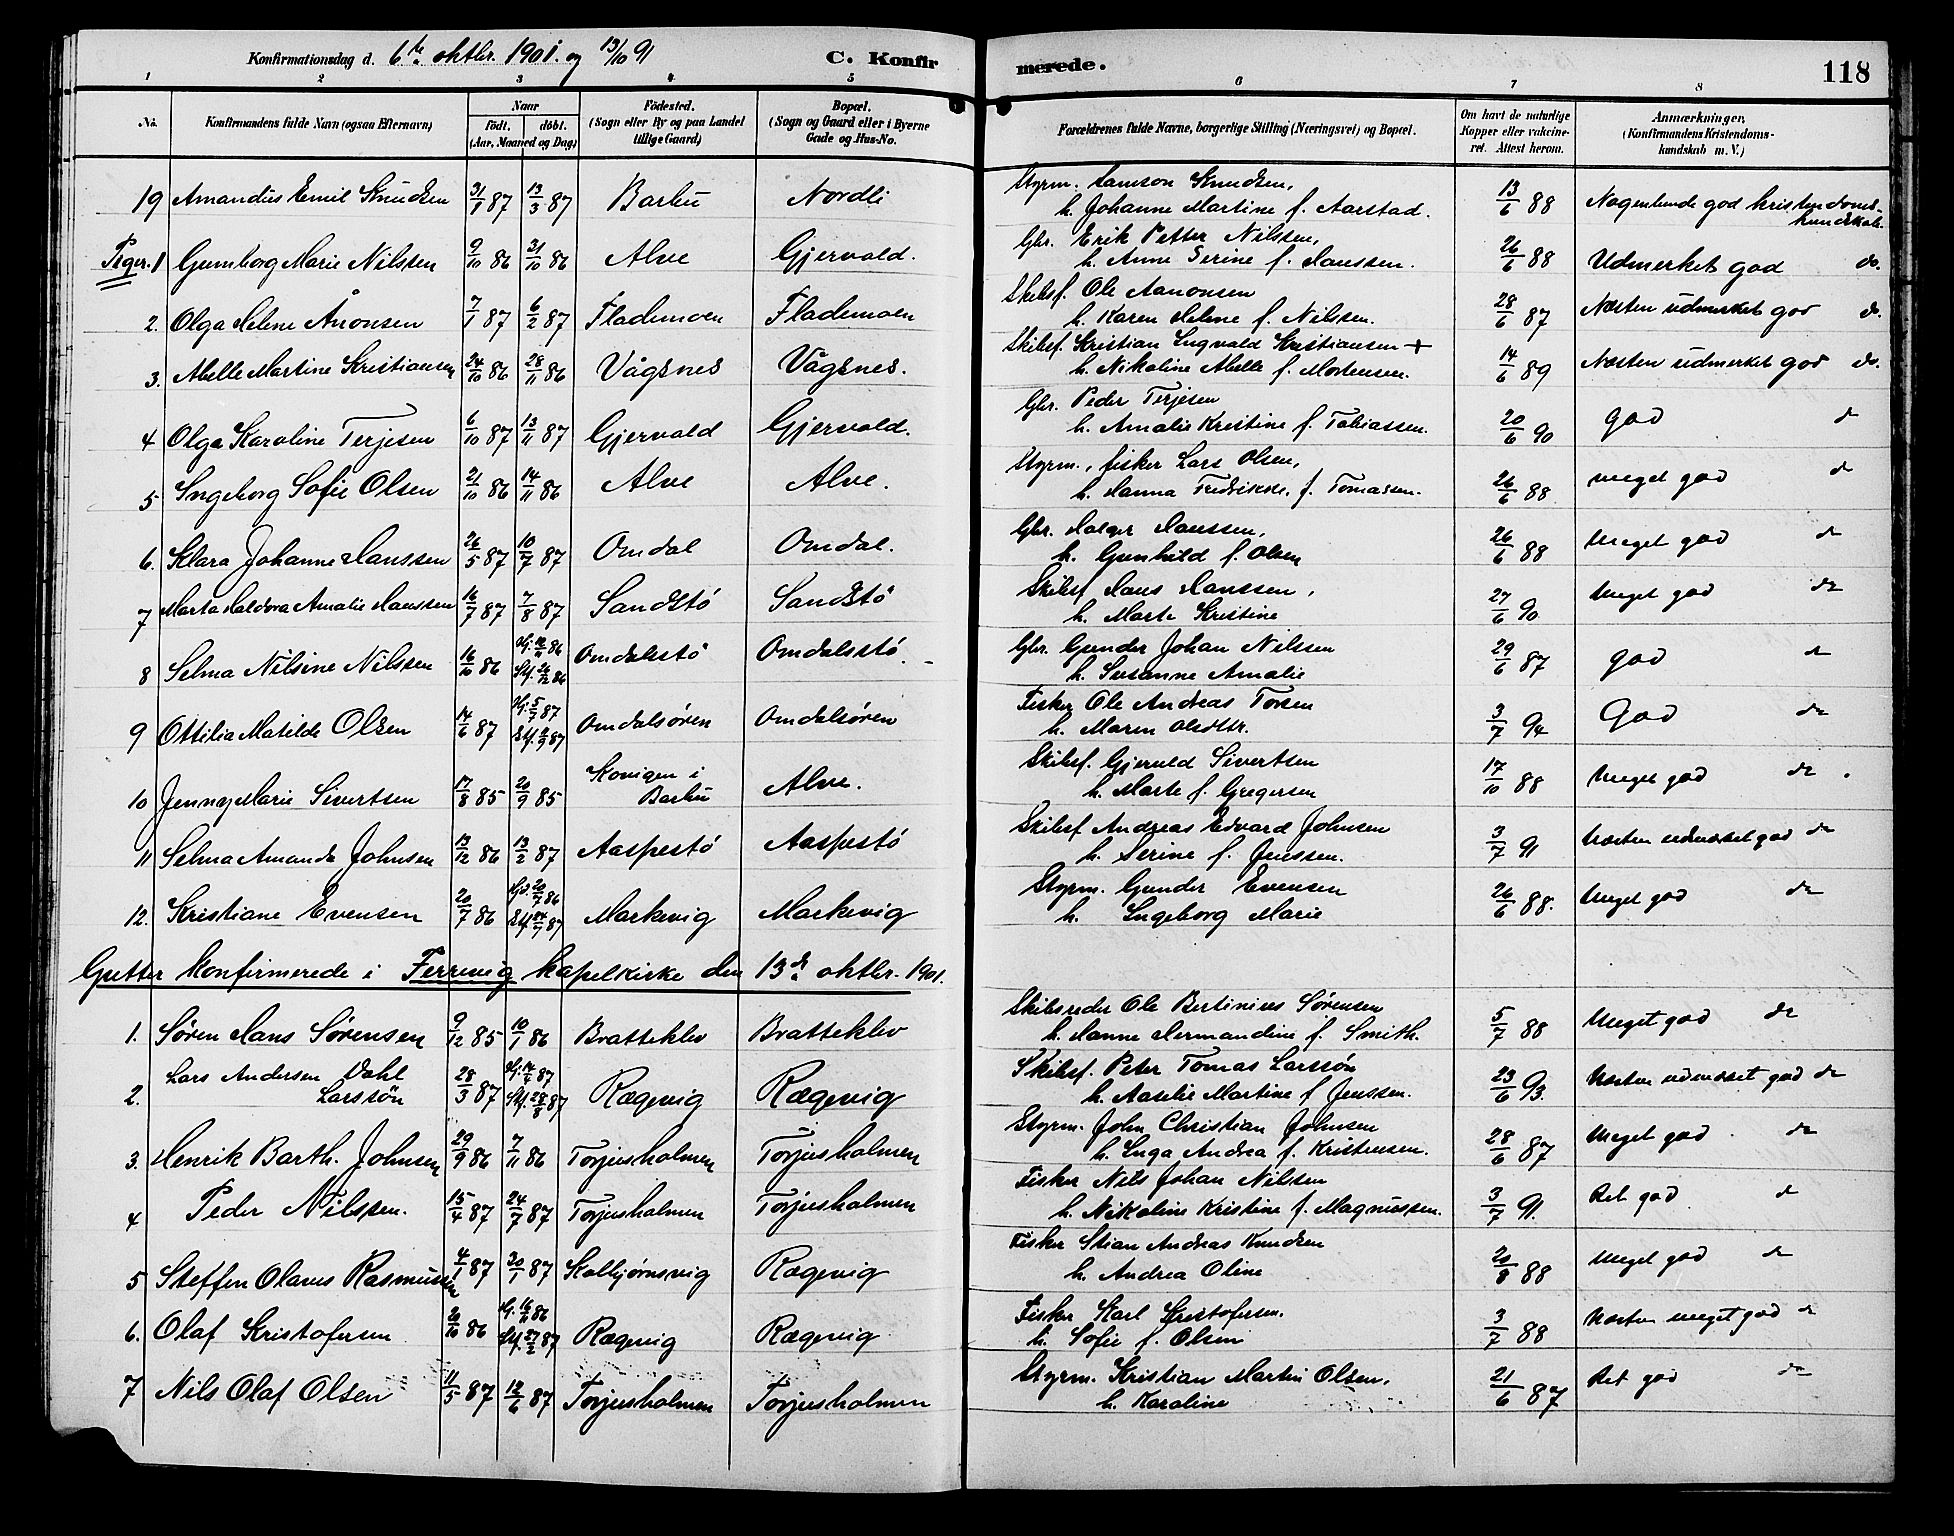 Konfirmationsdag d. 6te oktbr. 1901. og 13/10 91 C. Konfirmerede. 118
1 2 3 4 5 6 7 8
No. Konfirmandens fulde Navn (ogsaa Efternavn) Naar født. døbt. (Aar, Maaned og Dag) Fødested. (Sogn eller By og paa Landet tillige Gaard) Bopæl. (Sogn og Gaard eller i Byerne Gade og Hus-No. Forældrenes fulde Navne, borgerlige Stilling (Næringsvei) og Bopæl. Om havt de naturlige Kopper eller vakcineret. Attest herom. Anmærkninger, (Konfirmandens Kristendomskundskab m. V.)
19 Amandus Emil Knudsen 31/1 87 13/3 87 Barbu Nordli Styrm. Samson Knudsen, h. Johanne Martine f. Aarstad. 13/6 88 Nogenlunde god kristendomskundskab.
Piger. 1 Gumborg Marie Nilssen 9/10 86 31/10 86 Alve Gjervold. Gbr. Erik Petter Nilssen, h. Anne Serine f. Hanssen. 26/6 88 Udmerket god do.
2. Olga Helene Åronsen 7/1 87 6/2 87 Flademoen Flademoen Skibsf. Ole Aanonsen h. Karen Helene f. Nilsen. 28/6 87 Næsten udmerket god do.
3. Abelle Martine Kristiansen 24/10 86 28/11 86 Vågsnes Vågsnes. Skibsf. Kristian Ingvald Kristiansen + h. Nikoline Abelle f. Mortensen. 14/6 89 Næsten udmerket god do.
4 Olga Karoline Terjesen 6/10 87 13/11 87 Gjervold Gjervold. Gbr. Peder Terjesen h. Amalie Kristine f. Tobiassen. 20/6 90 god d
5 Ingeborg Sofie Olsen 21/10 86 14/11 86 Alve Alve. Styrm., fisker Lars Olsen, h. Hanna Fredrikke f. Tomassen. 26/6 88 meget god d
6. Klara Johanne Hanssen 26/5 87 10/7 87 Omdal Omdal. Gbr. Holger Hanssen, h. Gunhild f. Olsen 26/6 88 Meget god d
7 Marta Haldora Amalie Hanssen 16/7 87 7/8 87 Sandstø Sandstø Skibsf Hans Hanssen, h. Marte Kristine 27/6 90 Meget god do
8 Selma Nilsine Nilssen 16/10 86 Omdalsstø Omdalsstø Gbr. Gunder Johan Nilssen h. Susanne Amalie 29/6 87 god d
9 Ottilia Matilde Olsen 14/6 87 Hj. 5/7 87 St. 2/9 87 Omdalsøren Omdalsøren Fisker Ole Andreas Torsen h. Maren Olsdtr. 3/7 94 God do
10 Jenny Marie Sivertsen 17/8 85 20/9 85 Skovigen i Barbu Alve. Skibsf. Gjeruld Sivertsen h. Marte f. Gregersen 17/10 88 Meget god do.
11 Selma Amanda Johnsen 13/12 86 13/2 87 Aaspestø Aaspestø Skibsf Andreas Edvard Johnsen h. Serine f. Jenssen. 3/7 91 Næsten udmerket god do
12. Kristiane Evensen 20/7 86 Markevig Markevig Styrm. Gunder Evensen h. Ingeborg Marie 26/6 88. Meget god do
Gutter konfirmerede i Færevig kapelkirke den 13de oktbr. 1901.
1. Søren Hans Sørensen 9/12 85 10/1 86 Bratteklev Bratteklev Skibsreder Ole Bertinius Sørensen h. Hanne Hermandine f. Smith. 5/7 88 Meget god do
2. Lars Andersen Dahl Larssøn 28/3 87 Hj. 14/4 87 St. 28/8 87 Rægevig Rægevig Skibsf. Peter Tomas Larssøn h. Aaselie Martine f Jenssen. 23/6 93. Næsten udmerket god do
3. Henrik Barth. Johnsen 29/9 86 7/11 86 Torjusholmen Torjusholmen Styrm. John Christian Johnsen h. Inga Andrea f. Kristensen. 28/6 87 Meget god. do
4 Peder Nilssen. 15/4 87 24/7 87 Torjusholmen Torjusholmen Fisker Nils Johan Nilssen h. Nikoline Kristine f. Magnussen. 3/7 91. Ret god d
5 Steffen Olaves Rasmussen 4/1 87 20/1 87 Kolbjørnsvig Rægevig Fisker Stian Andreas Knudsen h. Andrea Oline 20/8 88 Meget god d
6. Olaf Kristofersen 20/10 86 Rægevig Rægevig Fisker Karl Kristofersen. h. Sofie f. Olsen 3/7 88 Næsten meget god d
7 Nils Olaf Olsen 11/5 87 12/6 87 Torjusholmen Torjusholmen Styrm. Kristian Martin Olsen, h. Karoline 21/6 87 Ret god do